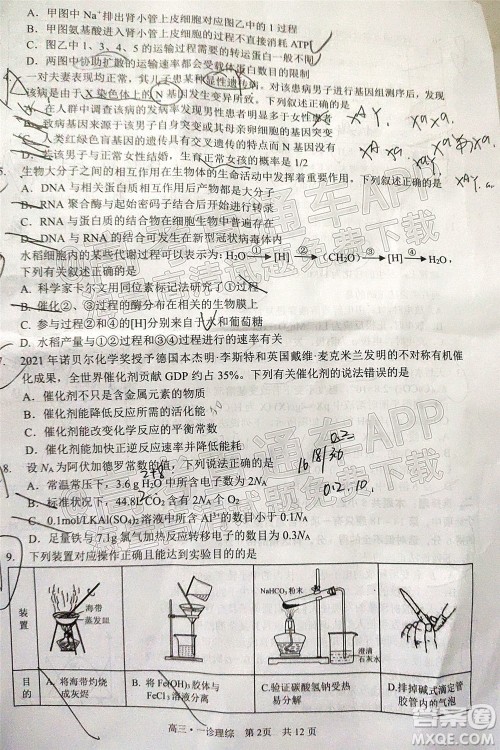 A. 甲图中 Na⁺排出肾小管上皮细胞对应图乙中的 1 过程
B. 甲图氨基酸进入肾小管上皮细胞的过程不直接消耗 ATP
C. 图乙中 1、3、4、5 的运输过程需要的转运蛋白
D. 两图中协助扩散的速率都会受膜蛋白数目的限制
4. 一对夫妻表现正常，其儿子患了某显性遗传病，对该患病男子进行基因组测序后，发现
该病是由于 X 染色体上的 N 基因发生变异所致。下列叙述正确的是
A. 在人群中调查该病的发病率发现男性患者明显多于女性患者
B. 致病基因来源于该男子的父本或母本的原始生殖细胞
C. 人类红绿色盲基因的遗传具有交叉遗传的特点而 N 基因没有
D. 若该男子与正常女性结婚，生育正常女孩的概率是 1/2
5. 生物大分子之间的相互作用在生物体的生命活动中发挥着重要作用。下列叙述正确的是
A. DNA 与蛋白质相互作用后产物都是大分子
B. RNA 聚合酶与起始密码子结合启动转录
C. RNA 与蛋白质的结合在细胞生物中普遍存在
D. DNA 与 RNA 的结合可发生在新型冠状病毒体内
水稻细胞内的某些代谢过程可以表示为：H₂O ①→ [H] ②→ (CH₂O) ③→ [H] ④→ H₂O，
下列有关叙述正确的是
A. 科学家卡尔文用同位素标记法研究了①过程
B. 催化②、③过程的酶分布在相关的生物膜上
C. 参与过程②和③的还有水和葡萄糖
7. 2021 年诺贝尔化学奖授予德国本杰明·李斯特和英国戴维·麦克米兰发明的不对称有机催
化成果，全世界催化剂贡献 GDP 约占 35%。下列有关催化剂的说法错误的是
A. 催化剂不只是含金属元素的物质
B. 催化剂能改变化学反应的限度
C. 催化剂能改变化学反应的活化能
D. 催化剂能加快正逆反应速率并能降低反应温度
8. 设 N_A 为阿伏加德罗常数的值，下列说法正确的是
A. 常温常压下，3.6 g H₂O 中所含电子数为 2N_A
B. 标准状况下，44.8L O₂ 中含有 2N_A 个 O₂
C. 0.1mol/LKAl(SO₄)₂ 溶液中所含 Al³⁺的数目小于 0.1N_A
D. 足量铁与 7.1g 氯气加热反应转移电子的数目为 0.3N_A
9. 下列装置对应操作正确且能达到实验目的的是
装置
海带
蒸发皿
NaHCO₃ 粉末
澄清
石灰水
目的
A. 将海带灼烧
成灰烬
B. 将 Fe(OH)₃胶体与
FeCl₃ 溶液分离
C.验证碳酸氢钠受热
易分解
D.排掉碱式滴定管
胶管内的气泡
高三·一诊理综 第 2页 共 12 页